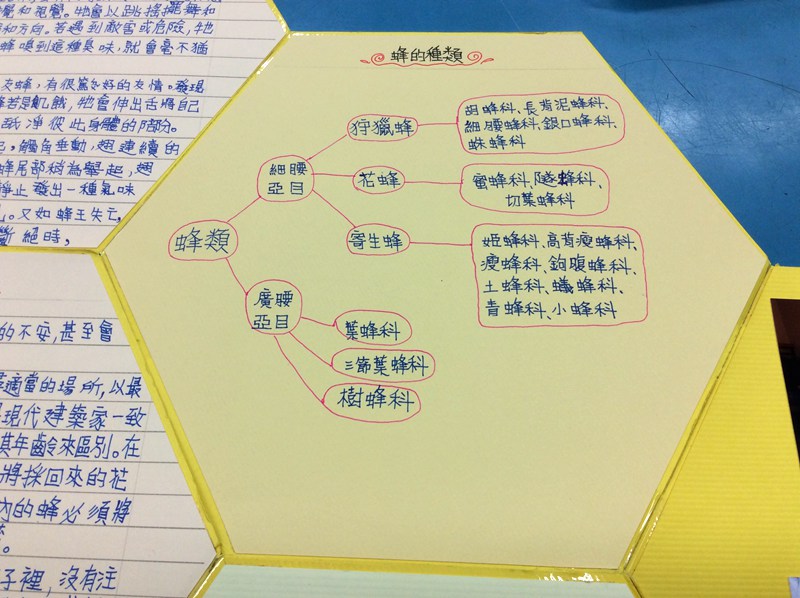 覺和視覺。牠會以跳搖擺舞和
和方向。若遇到敵害或危險,牠
蜂嗅到這種臭味,就會毫不猶
友蜂,有很篤好的友情。發現
蜂若是飢餓,牠會伸出舌將自己
舐淨彼此身體的部份。
起,觸角垂動,翅連續的
蜂尾部稍為舉起,翅
靜止發出一種氣味
。又如蜂王失亡,
斷絕時,
的不安,甚至會
適當的場所,以最
現代建築家一致
其年齡來區別。在
將採回來的花
內的蜂必須將
。
子裡,沒有注
蜂的種類
蜂類
細腰
亞目
狩獵蜂
胡蜂科、長背泥蜂科
細腰蜂科、銀口蜂科、
蛛蜂科
花蜂
蜜蜂科、隧蜂科、
切葉蜂科
寄生蜂
姬蜂科、高背瘦蜂科、
瘦蜂科、鉤腹蜂科、
土蜂科、蟻蜂科、
青蜂科、小蜂科
廣腰
亞目
葉蜂科
三節葉蜂科
樹蜂科